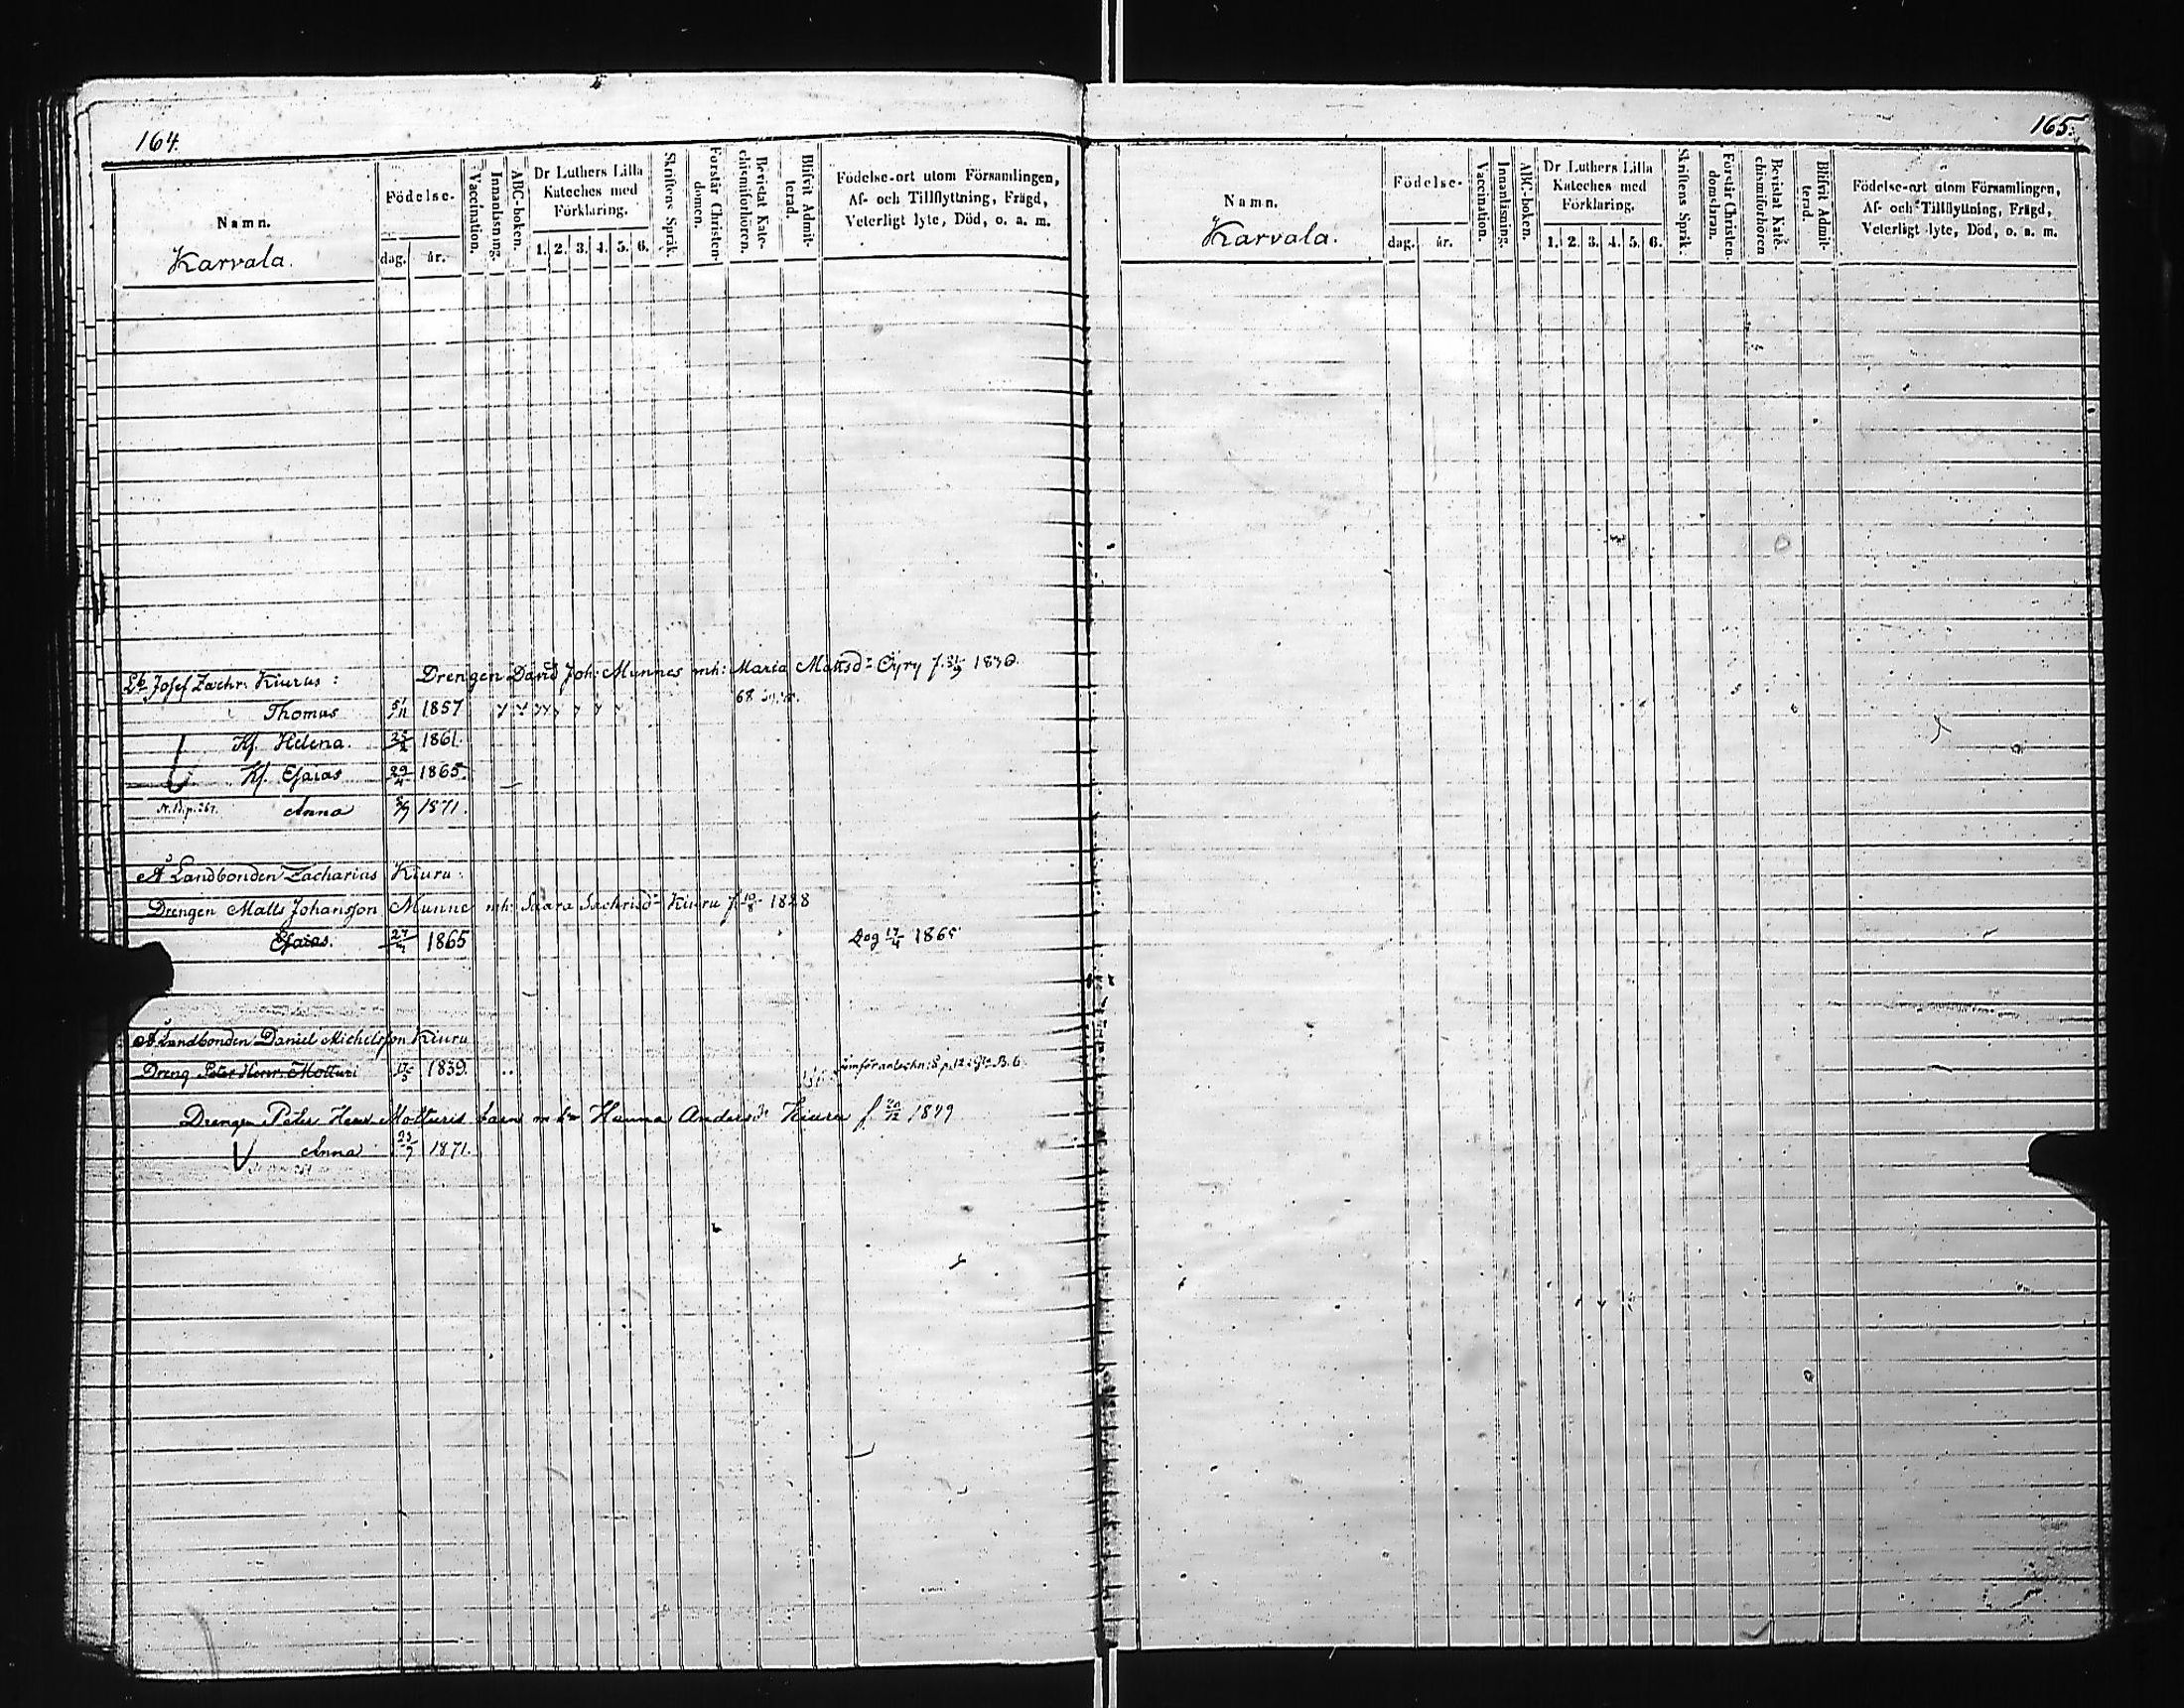 164.
Namn.
Karvala.
Födelse-
dag. år.
Vaccination.
Innanläsning.
ABC-boken.
Dr Luthers Lilla
Kateches med
Förklaring.
1. 2. 3. 4. 5. 6.
Skriftens Språk.
Förstår Christen-
domen.
Bevistat Kate-
chismiförhören.
Blifvit Admit-
terad.
Födelse-ort utom Församlingen,
Af- och Tillflyttning, Frägd,
Veterligt lyte, Död, o. a. m.
Lb. Josef Zachr. Kiurus: Drengen David Joh. Munnes mh: Maria Mattsdr Öyry f. 1830.
Thomas 5/11 1857
Kf. Helena. 1861.
Kf. Esaias 29/4 1865.
N. B. p. 267. Anna 1871.
Å Landbonden Zacharias Kiuru:
Drengen Matts Johansson Munne mh: Saara Sachrisdr Kiuru f. 10/8 1828
Esaias. 1865 Dog 17/4 1865
Å Landbonden Daniel Michelsson Kiuru
Dreng Peter Henr. Motturi 1839.
Drengen Peter Henr. Motturis barn m h Hanna Andersdr Kiuru f. 20/12 1849
Anna 23/7 1871.
165.
Namn.
Karvala.
Födelse-
dag. år.
Vaccination.
Innanläsning.
ABC-boken.
Dr Luthers Lilla
Kateches med
Förklaring.
1. 2. 3. 4. 5. 6.
Skriftens Språk.
Förstår Christen-
domsläran.
Bevistat Kate-
chismiförhören
Blifvit Admit-
terad.
Födelse-ort utom Församlingen,
Af- och Tillflyttning, Frägd,
Veterligt lyte, Död, o. a. m.